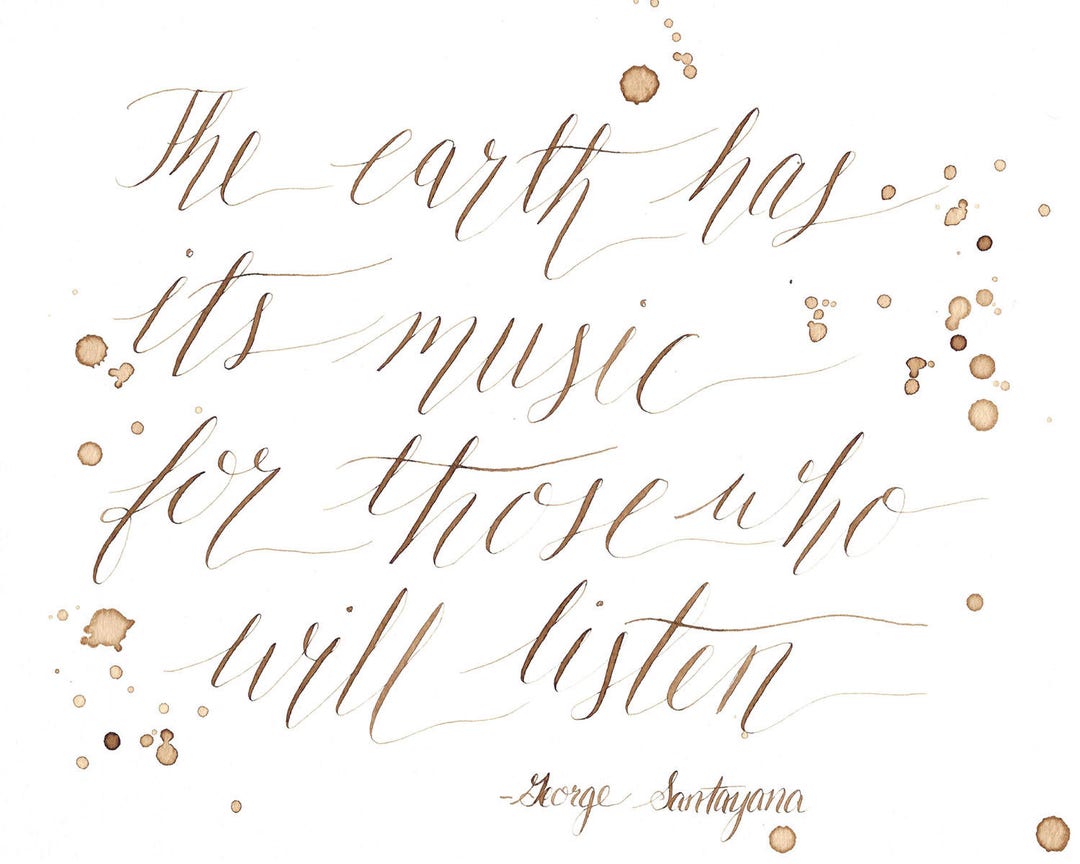 The earth has
its music
for those who
will listen
-George Santayana